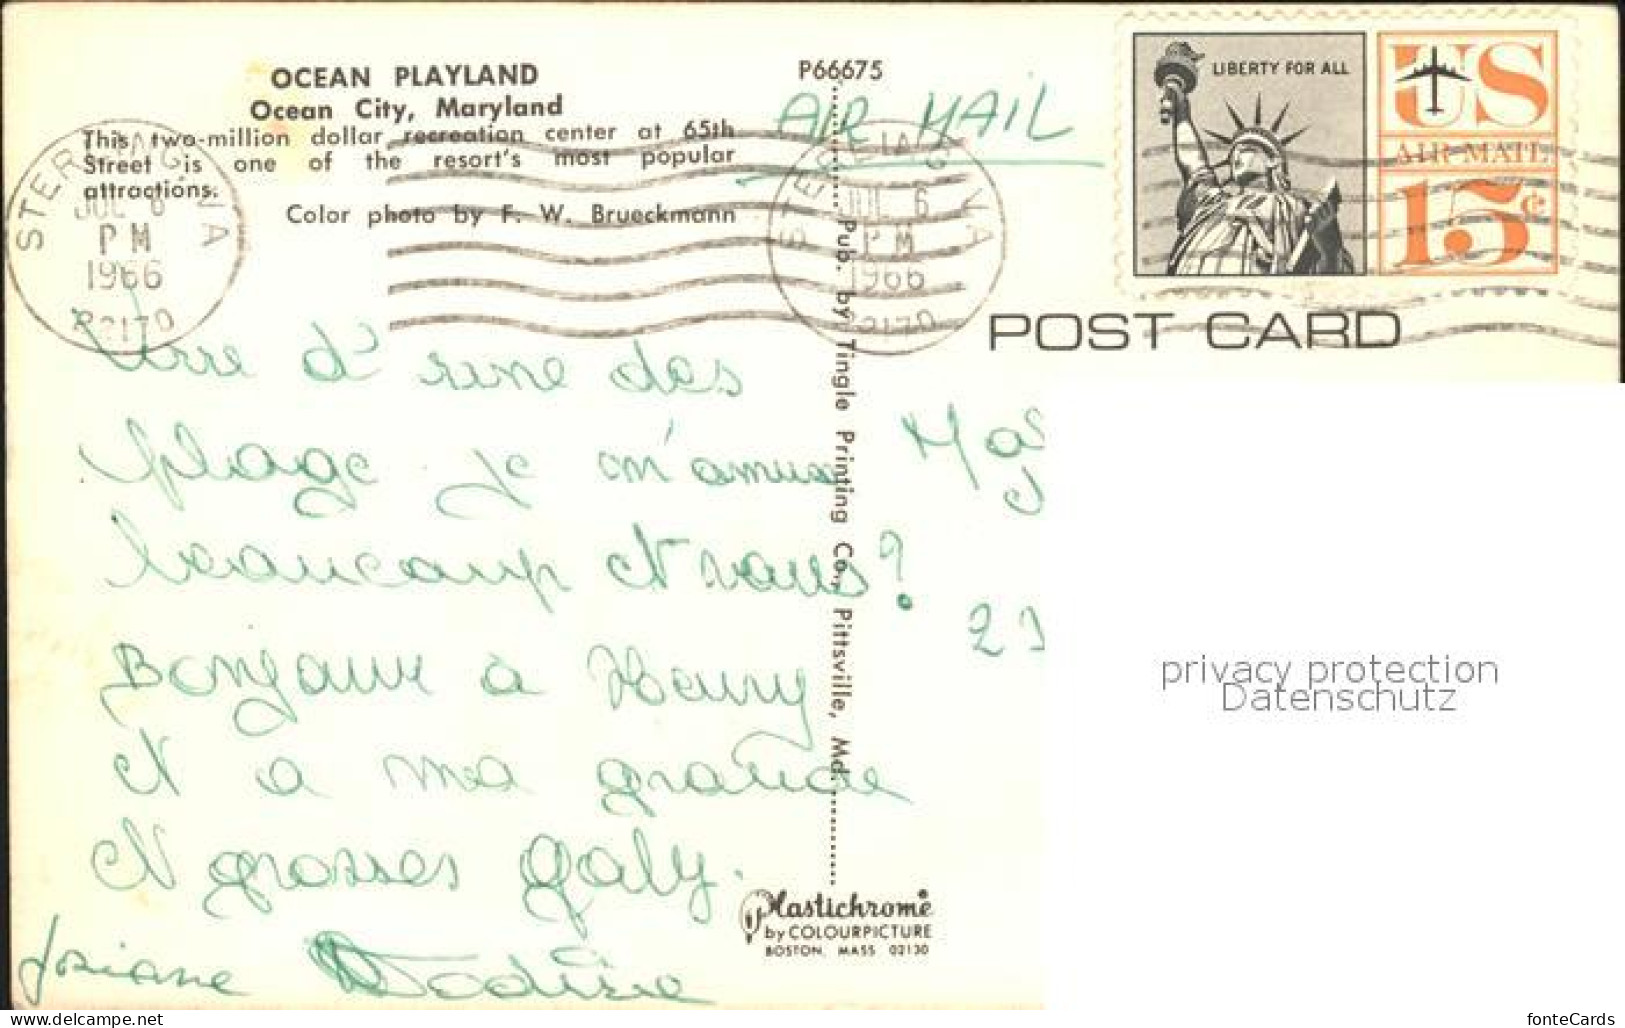 OCEAN PLAYLAND
Ocean City, Maryland
This two-million dollar recreation center at 65th
Street is one of the resort's most popular
attractions.
Color photo by F. W. Brueckmann
P66675
AIR MAIL
LIBERTY FOR ALL
US
AIR MAIL
15¢
STERLING VA
JUL 6
PM
1966
22170
STERLING VA
JUL 6
PM
1966
22170
POST CARD
Pub. by Tingle Printing Co., Pittsville, Md.
d' une des
plage je m'amuse
beaucoup et vous?
Bonjour à Henry
et a ma grande
et grosses gaby.
Josiane
Plastichrome
by COLOURPICTURE
BOSTON, MASS 02130
privacy protection
Datenschutz
www.delcampe.net
fonteCards